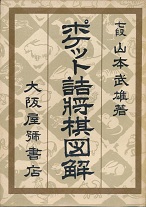 七段 山本武雄著
ポケット詰将棋図解
大阪屋號書店